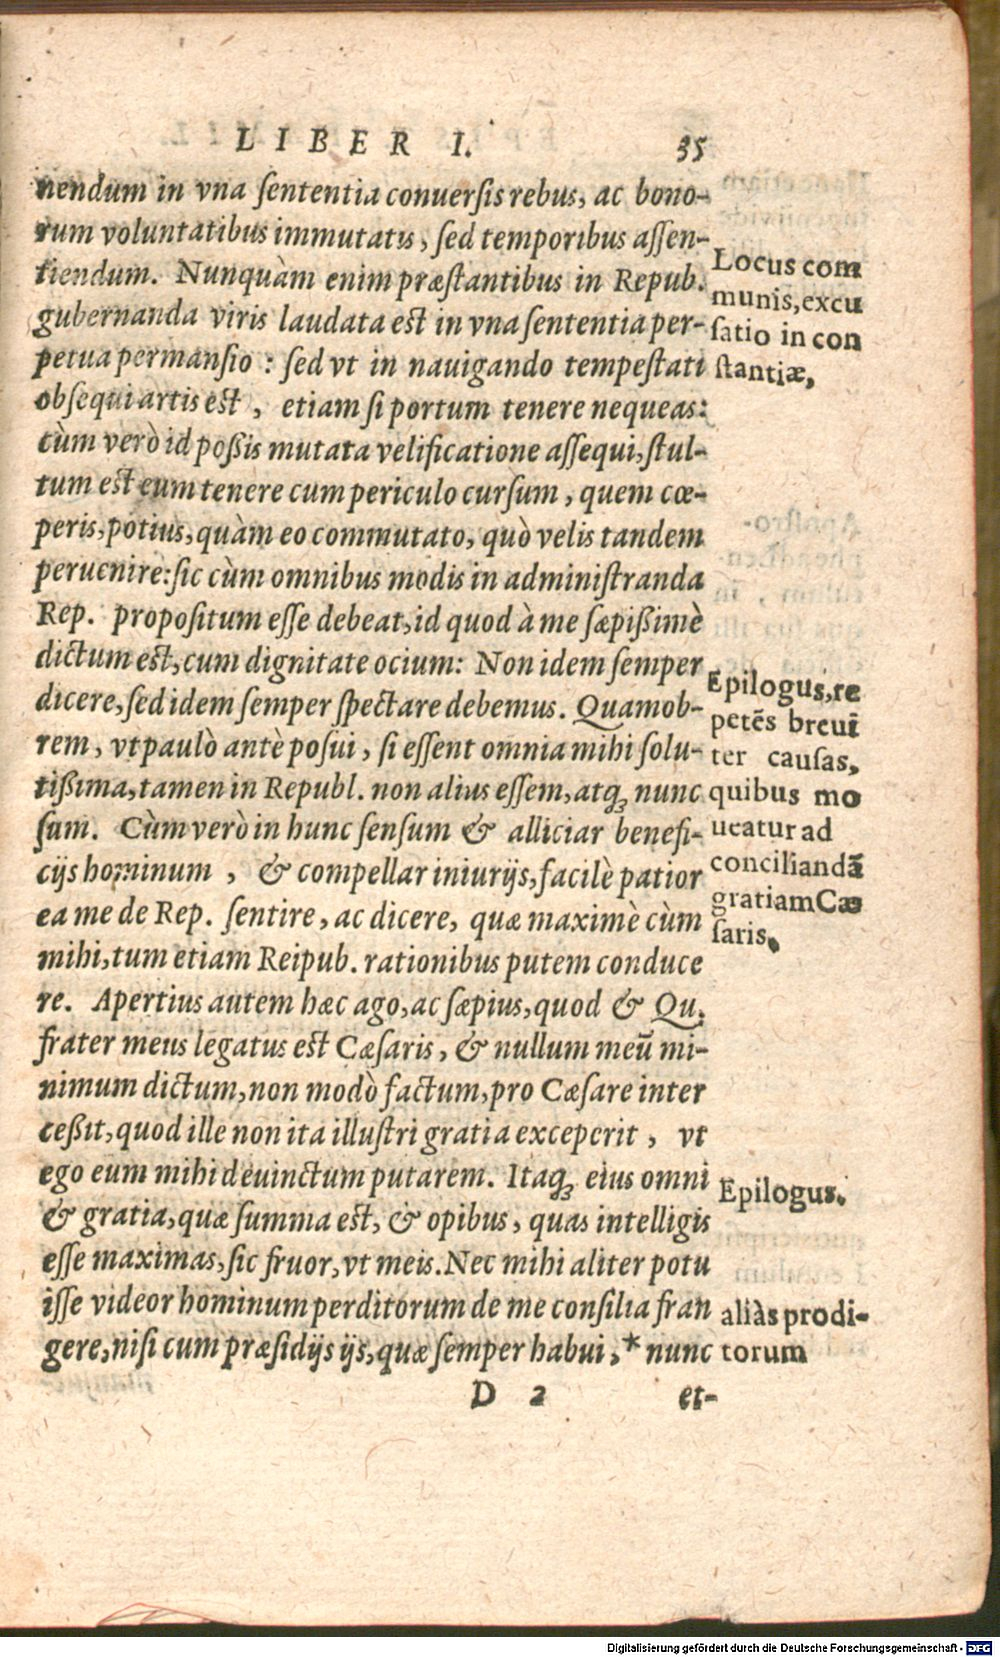 LIBER I. 35
nendum in vna sententia conuersis rebus, ac bono-
rum voluntatibus immutatis, sed temporibus assen-
tiendum. Nunquàm enim præstantibus in Repub.
gubernanda viris laudata est in vna sententia per-
petua permansio : sed vt in nauigando tempestati
obsequi artis est, etiam si portum tenere nequeas:
cùm verò id poßis mutata velificatione assequi, stul-
tum est eum tenere cum periculo cursum, quem cœ-
peris, potius, quàm eo commutato, quò velis tandem
peruenire: sic cùm omnibus modis in administranda
Rep. propositum esse debeat, id quod à me sæpißimè
dictum est, cum dignitate ocium: Non idem semper
dicere, sed idem semper spectare debemus. Quamob-
rem, vt paulò antè posui, si essent omnia mihi solu-
tißima, tamen in Republ. non alius essem, atq; nunc
sum. Cùm verò in hunc sensum & alliciar benefi-
cijs hominum, & compellar iniurijs, facilè patior
ea me de Rep. sentire, ac dicere, quæ maximè cùm
mihi, tum etiam Reipub. rationibus putem conduce
re. Apertius autem hæc ago, ac sæpius, quod & Qu.
frater meus legatus est Cæsaris, & nullum meũ mi-
nimum dictum, non modò factum, pro Cæsare inter
ceßit, quod ille non ita illustri gratia exceperit, vt
ego eum mihi deuinctum putarem. Itaq; eius omni
& gratia, quæ summa est, & opibus, quas intelligis
esse maximas, sic fruor, vt meis. Nec mihi aliter potu
isse videor hominum perditorum de me consilia fran
gere, nisi cum præsidijs ijs, quæ semper habui, * nunc
D 2 et-
Locus com
munis, excu
satio in con
stantiæ,
Epilogus, re
petẽs breui
ter causas,
quibus mo
ueatur ad
conciliandã
gratiam Cæ
saris.
Epilogus.
aliàs prodi-
torum
Digitalisierung gefördert durch die Deutsche Forschungsgemeinschaft - DFG